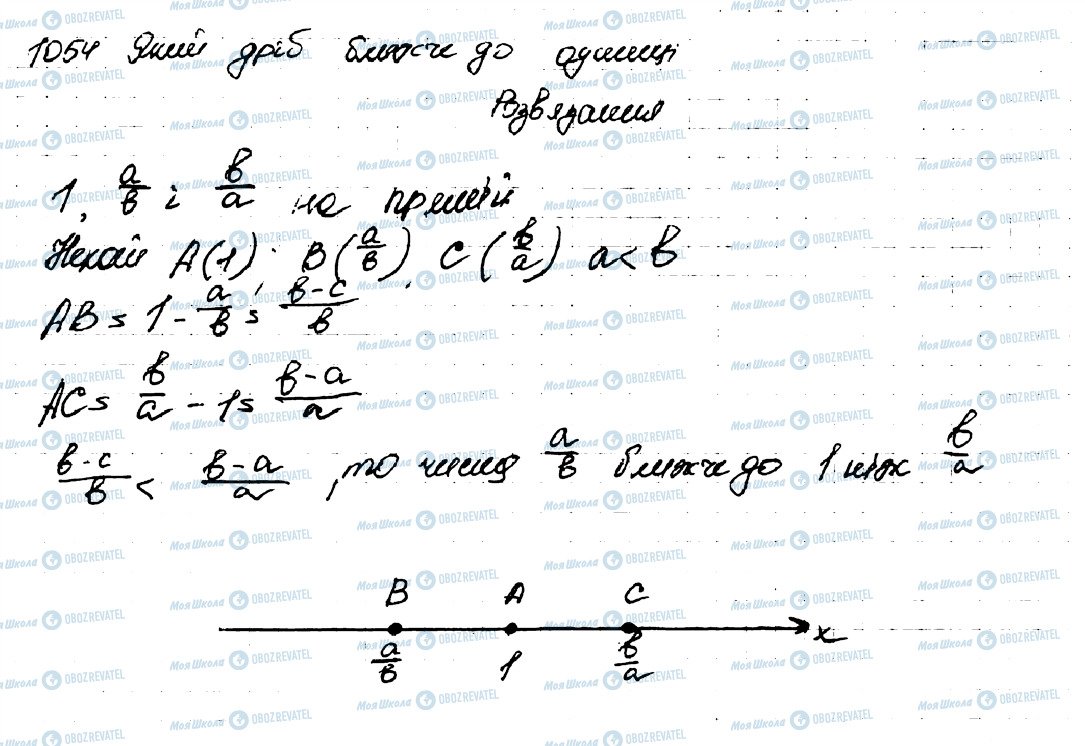 1054 Який дріб ближче до одиниці
Взвязання
1, a/в і в/a на прямій
Нехай A(1); B(a/в), C(в/a) a<в
AB = 1 - a/в = в-c/в
AC = в/a - 1 = в-a/a
в-c/в < в-a/a, то число a/в ближче до 1 ніж в/a
B A C
a/в 1 в/a x
Моя Школа OBOZREVATEL